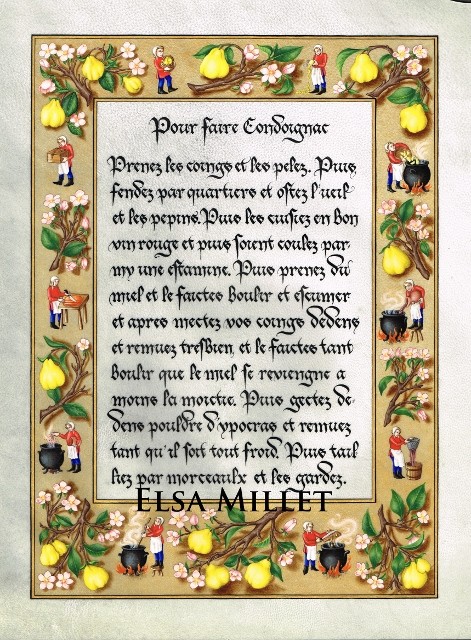 Pour faire Condoignac
Prenez les coings et les pelez. Puis
fendez par quartiers et ostez l'ueil
et les pepins. Puis les cuisiez en bon
vin rouge et puis soient coulez par
my une estamine. Puis prenez du
miel et le faictes boulir et escumer
et apres mectez vos coings dedens
et remuez tresbien, et le faictes tant
boulir que le miel se reviengne a
moins la moictie. Puis gectez de-
dens pouldre d'ypocras et remuez
tant qu'il soit tout froid. Puis tail
liez par morceaulx et les gardez.
ELSA MILLET